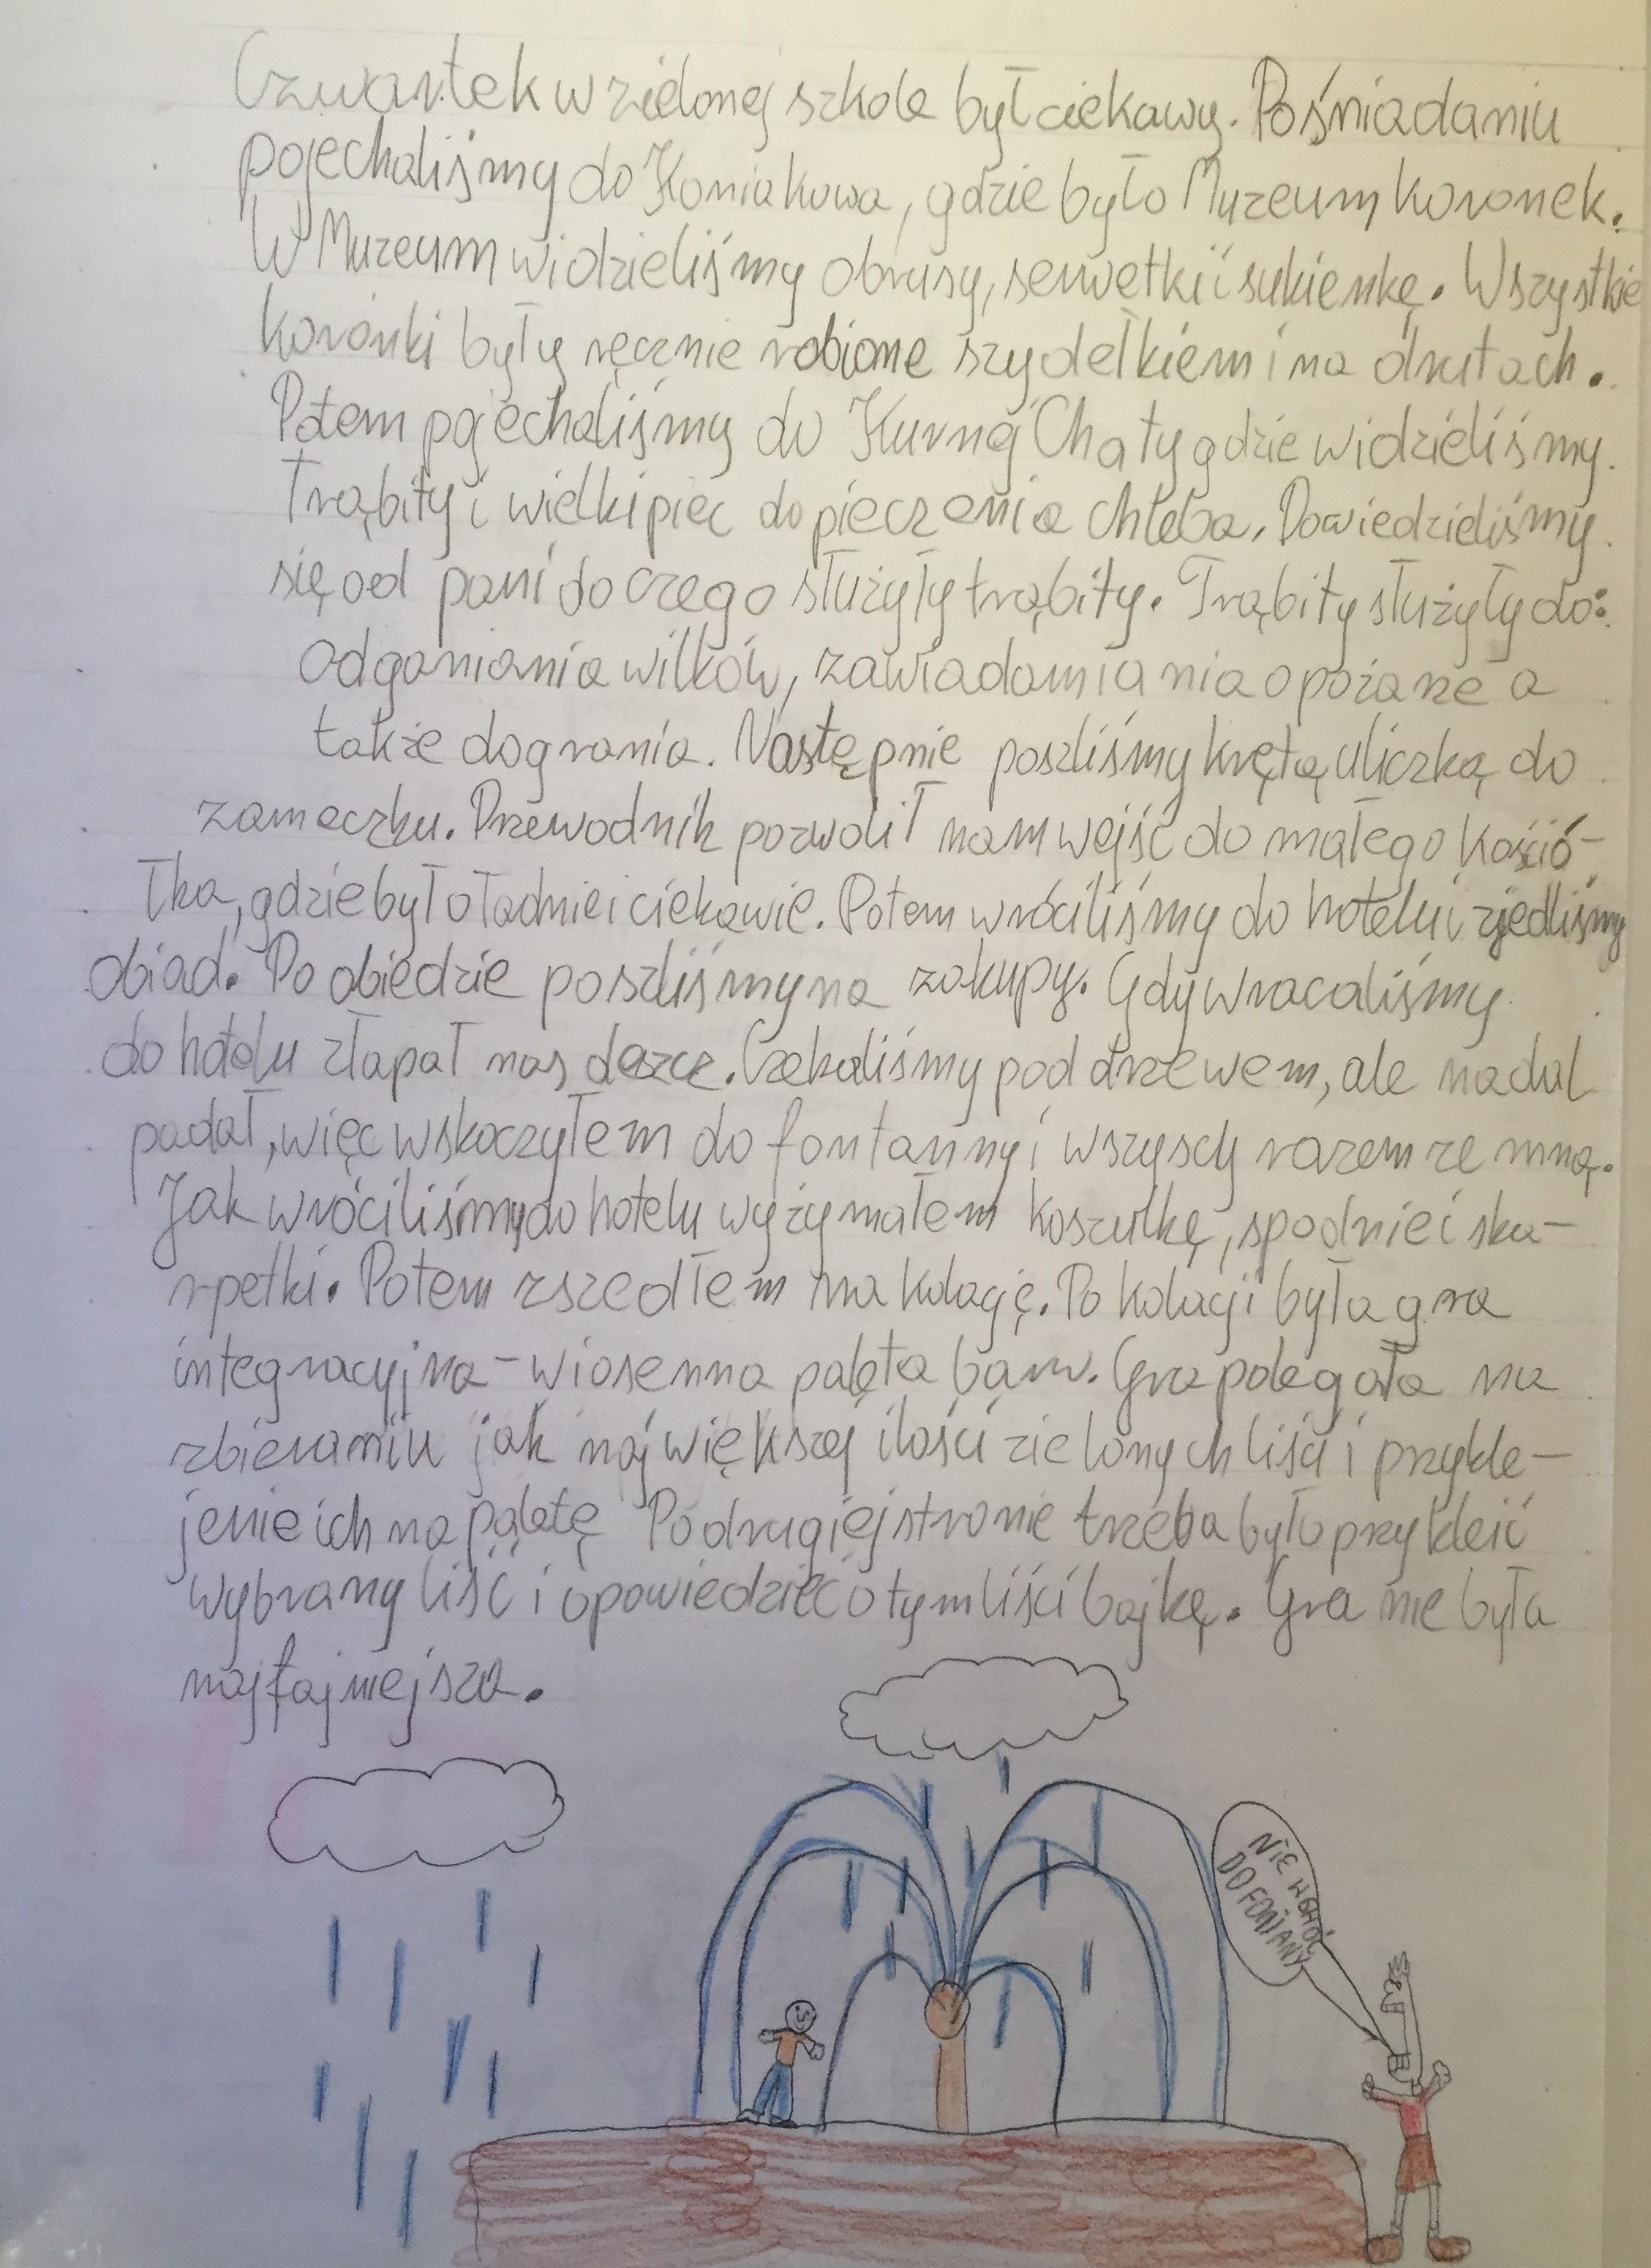 Czwartek w zielonej szkole był ciekawy. Po śniadaniu
pojechaliśmy do Koniakowa, gdzie było Muzeum koronek.
W Muzeum widzieliśmy obrusy, serwetki i sukienkę. Wszystkie
koronki były ręcznie robione szydełkiem i na drutach.
Potem pojechaliśmy do Kurnej Chaty gdzie widzieliśmy
Trąbity i wielki piec do pieczenia chleba. Dowiedzieliśmy
się od pani do czego służyły trąbity. Trąbity służyły do:
odganiania wilków, zawiadamiania o pożarze a
także do grania. Następnie poszliśmy krętą uliczką do
zameczku. Przewodnik pozwolił nam wejść do małego kośció-
łka, gdzie było ładnie i ciekawie. Potem wróciliśmy do hotelu i zjedliśmy
obiad. Po obiedzie poszliśmy na zakupy. Gdy wracaliśmy
do hotelu złapał nas deszcz. Czekaliśmy pod drzewem, ale nadal
padał, więc wskoczyłem do fontanny i wszyscy razem ze mną.
Jak wróciliśmy do hotelu wyżymałem koszulkę, spodnie i ska-
rpetki. Potem zszedłem na kolację. Po kolacji była gra
integracyjna - wiosenna paleta barw. Gra polegała na
zbieraniu jak największej ilości zielonych liści i przykle-
jenie ich na paletę Po drugiej stronie trzeba było przykleić
wybrany liść i opowiedzieć o tym liści bajkę. Gra nie była
najfajniejsza.
NIE
DO FONTANY